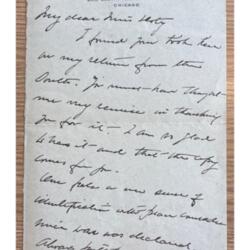 CHICAGO
My dear Miss Doty
I found your book here
on my return from the
South. You must have thought
me very remiss in thanking
you for it – I am so glad
to have it and that the copy
comes from you.
One feels a new sense of
identification with
since war was declared